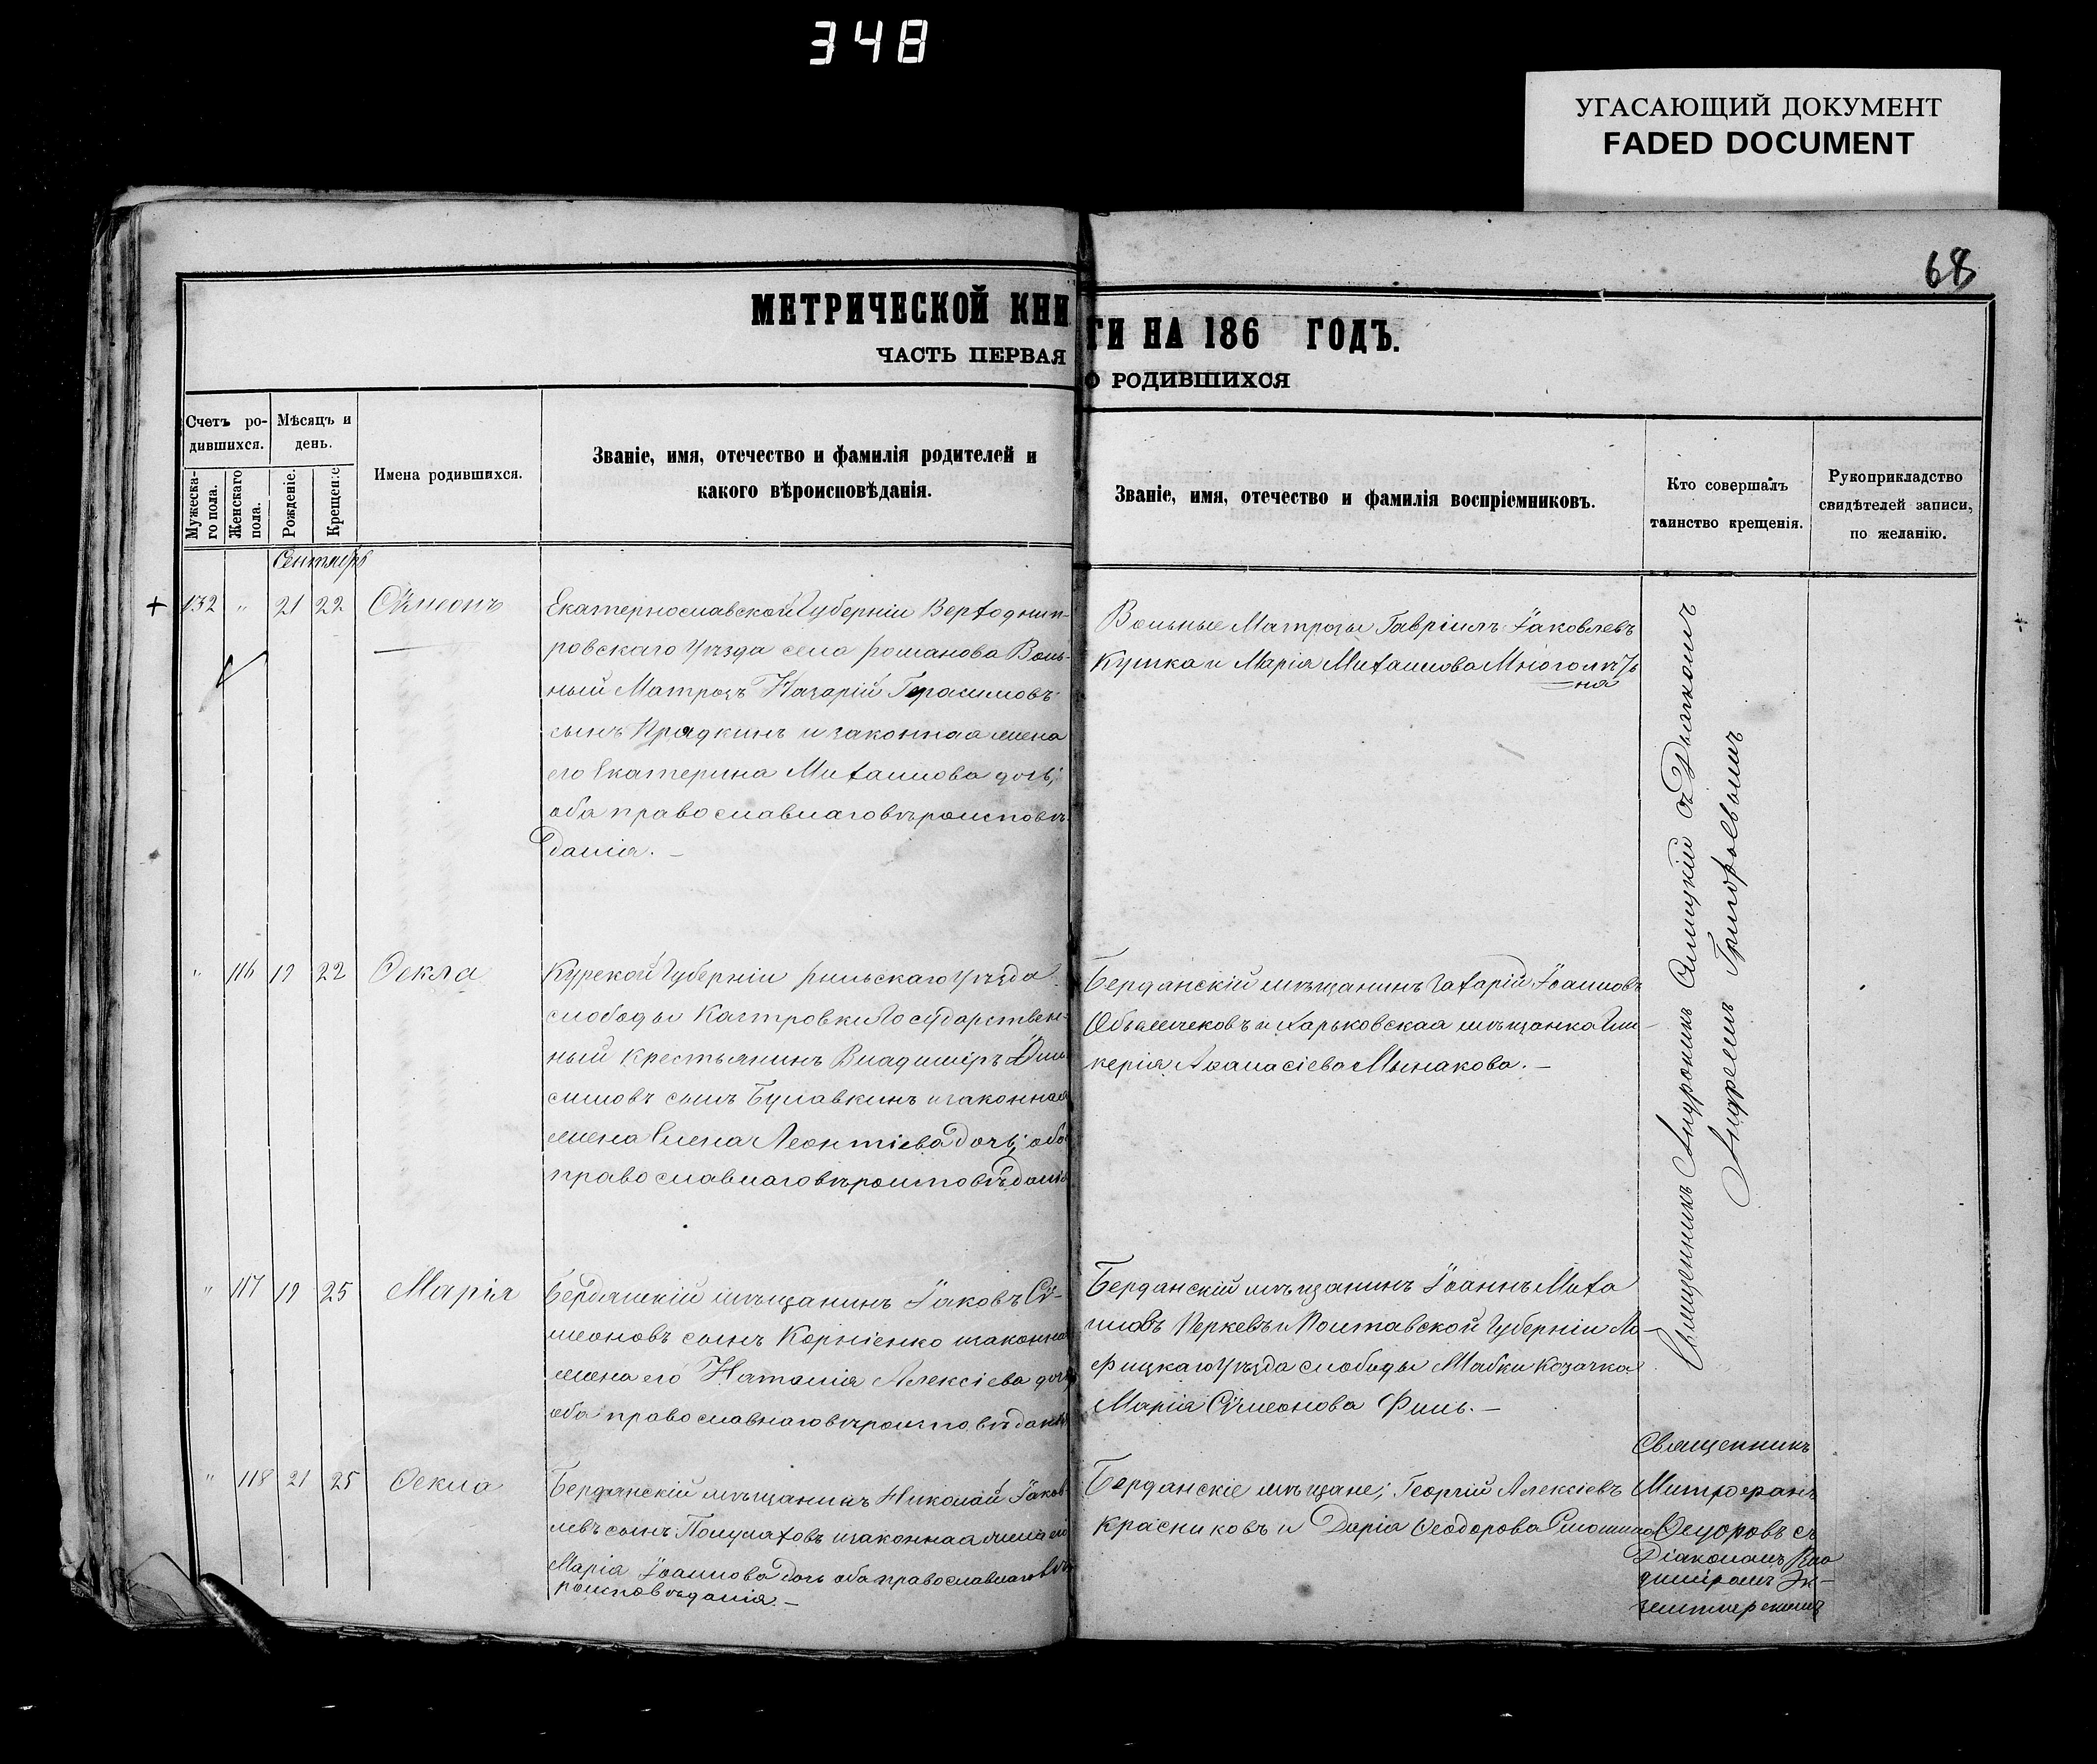 348
УГАСАЮЩИЙ ДОКУМЕНТ
FADED DOCUMENT
68
МЕТРИЧЕСКОЙ КНИ
ГИ НА 186 ГОДЪ.
ЧАСТЬ ПЕРВАЯ
О РОДИВШИХСЯ
Счетъ ро-
дившихся.
Мѣсяцъ и
день.
Мужеска-
го пола.
Женскаго
пола.
Рожденіе.
Крещеніе
Имена родившихся.
Званіе, имя, отечество и фамилія родителей и
какого вѣроисповѣданія.
Званіе, имя, отечество и фамилія воспріемниковъ.
Кто совершалъ
таинство крещенія.
Рукоприкладство
свидѣтелей записи,
по желанію.
Сентябрь
+ 132 " 21 22 Сѵмеонъ
Екатеринославской Губерніи Верходнип-
ровскаго Уѣзда села Романова Воль-
ный Матрозъ Назарій Герасимовъ
сынъ Прядкинъ и законная жена
его Екатерина Михаилова дочь;
оба православнаго вѣроисповѣ-
данія. –
Вольные Матрозы Гавріилъ Іаковлевъ
Кушка и Марія Михаилова Многолѣтъ
на
" 116 19 22 Ѳекла
Курской Губерніи Рыльскаго Уѣзда
слободы Государствен-
ный крестьянинъ Владиміръ
симовъ сынъ Булавкинъ и законная
жена Елена Леонтіева дочь; оба
православнаго вѣроисповѣданія
Бердянскій мѣщанинъ Захарій Іоанновъ
и Харьковская мѣщанка Гли-
керія Аѳанасіева Мынакова. –
" 117 19 25 Марія
Бердянскій мѣщанинъ Іаковъ Сѵ-
меоновъ сынъ Корніенко и законная
жена его Наталія Алексіева дочь
оба православнаго вѣроисповѣданія
Бердянскій мѣщанинъ Іоаннъ Миха
иловъ и Полтавской Губерніи Ло-
фицкаго Уѣзда слободы козачка
Марія Сѵмеонова Филь. –
" 118 21 25 Ѳекла
Бердянскій мѣщанинъ Николай Іаков-
левъ сынъ Полуляховъ и законная жена его
Марія Іоаннова дочь оба православнаго вѣ-
роисповѣданія. –
Бердянскіе мѣщане; Георгій Алексіевъ
Красниковъ и Дарія Ѳеодорова
Священникъ Андроникъ Силицкій съ Дьякомъ
Андреемъ Григорьевымъ
Священникъ
Митрофанъ
Ѳедоровъ съ
Діакономъ Вла
диміромъ Эк-